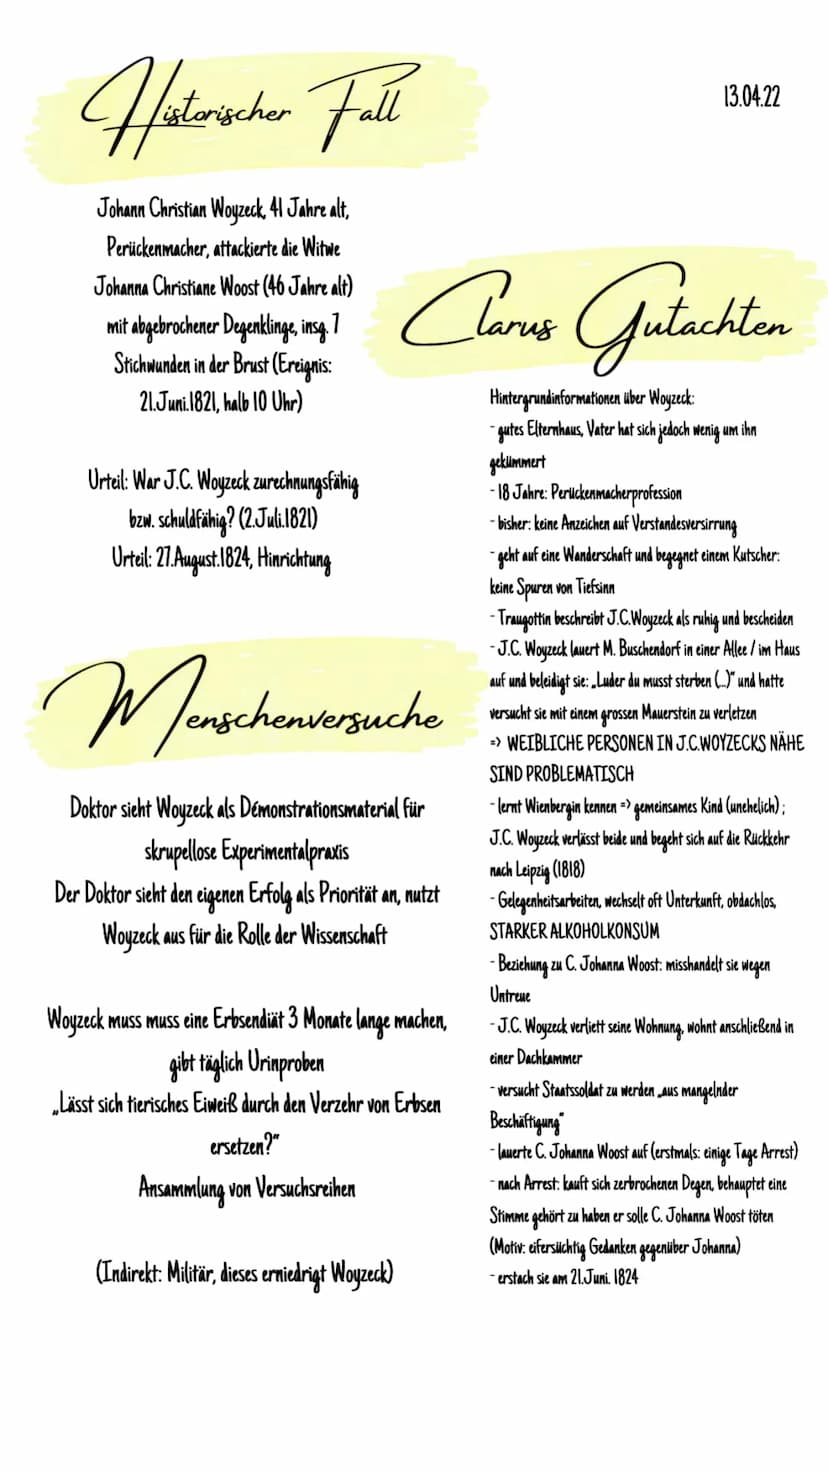 Historischer Fall
13.04.22
Johann Christian Woyzeck, 41 Jahre alt,
Perückenmacher, attackierte die Witwe
Johanna Christiane Woost (46 Jahre alt)
mit abgebrochener Degenklinge, insg. 7
Stichwunden in der Brust (Ereignis:
21.Juni.1821, halb 10 Uhr)
Urteil: War J.C. Woyzeck zurechnungsfähig
bzw. schuldfähig? (2.Juli.1821)
Urteil: 27.August.1824, Hinrichtung
Menschenversuche
Doktor sieht Woyzeck als Démonstrationsmaterial für
skrupellose Experimentalpraxis
Der Doktor sieht den eigenen Erfolg als Priorität an, nutzt
Woyzeck aus für die Rolle der Wissenschaft
Woyzeck muss muss eine Erbsendiät 3 Monate lange machen,
gibt täglich Urinproben
„Lässt sich tierisches Eiweiß durch den Verzehr von Erbsen
ersetzen?"
Ansammlung von Versuchsreihen
(Indirekt: Militär, dieses erniedrigt Woyzeck)
Clarus Gutachten
Hintergrundinformationen über Woyzeck:
- gutes Elternhaus, Vater hat sich jedoch wenig um ihn
gekümmert
- 18 Jahre: Perückenmacherprofession
- bisher: keine Anzeichen auf Verstandesversirrung
- geht auf eine Wanderschaft und begegnet einem Kutscher:
keine Spuren von Tiefsinn
- Traugottin beschreibt J.C.Woyzeck als ruhig und bescheiden
- J.C. Woyzeck lauert M. Buschendorf in einer Allee / im Haus
auf und beleidigt sie: „Luder du musst sterben (...)" und hatte
versucht sie mit einem grossen Mauerstein zu verletzen
=> WEIBLICHE PERSONEN IN J.C.WOYZECKS NÄHE
SIND PROBLEMATISCH
- lernt Wienbergin kennen => gemeinsames Kind (unehelich) ;
J.C. Woyzeck verlässt beide und begeht sich auf die Rückkehr
nach Leipzig (1818)
- Gelegenheitsarbeiten, wechselt oft Unterkunft, obdachlos,
STARKER ALKOHOLKONSUM
- Beziehung zu C. Johanna Woost: misshandelt sie wegen
Untreue
- J.C. Woyzeck verliett seine Wohnung, wohnt anschließend in
einer Dachkammer
- versucht Staatssoldat zu werden „aus mangelnder
Beschäftigung"
- lauerte C. Johanna Woost auf (erstmals: einige Tage Arrest)
- nach Arrest: kauft sich zerbrochenen Degen, behauptet eine
Stimme gehört zu haben er solle C. Johanna Woost töten
(Motiv: eifersüchtig Gedanken gegenüber Johanna)
- erstach sie am 21.Juni. 1824